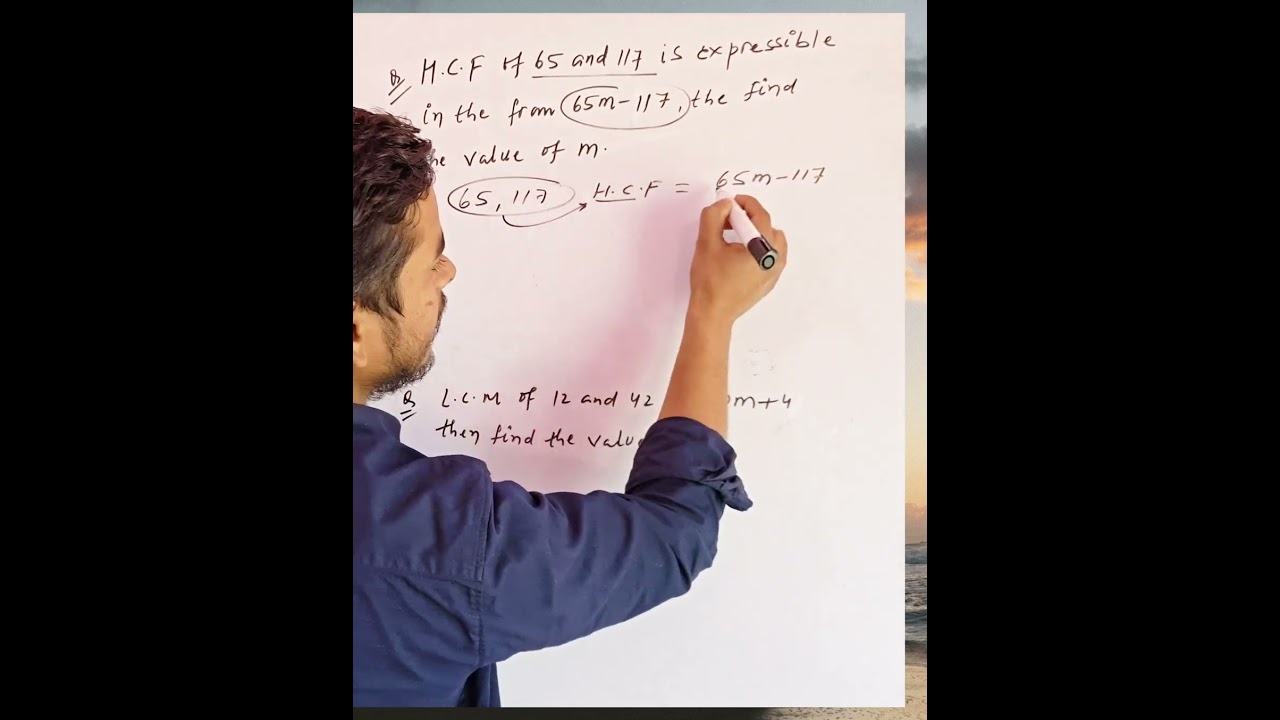 Q H.C.F of 65 and 117 is expressible
in the from 65m-117, the find
value of m.
65, 117 H.C.F = 65m-117
Q L.C.M of 12 and 42 m+4
then find the